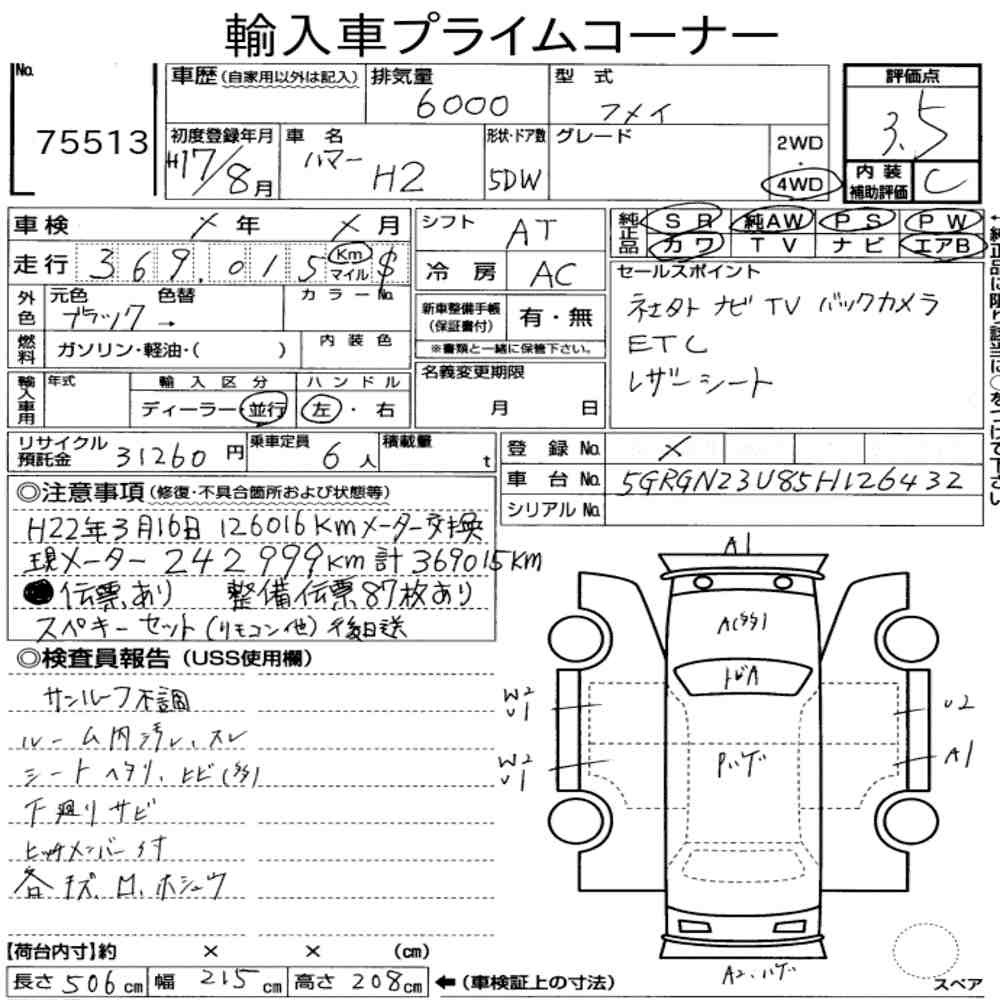 輸入車プライムコーナー
No.
75513
車歴(自家用以外は記入)
排気量
6000
型 式
フメイ
評価点
3.5
初度登録年月
H17/8月
車 名
ハマー H2
形状・ドア数
5DW
グレード
2WD
・
4WD
内装
補助評価
C
車検 × 年 × 月
シフト AT
純正品
SR 純AW PS PW
カワ TV ナビ エアB
走行 369,015 Km マイル $
冷房 AC
セールスポイント
社外 ナビ TV バックカメラ
ETC
レザーシート
外色
元色 色替 カラーNo.
ブラック →
新車整備手帳
(保証書付)
有・無
※書類と一緒に保管下さい。
燃料
ガソリン・軽油・( )
内装色
名義変更期限
月 日
輸入車用
年式
輸入区分
ディーラー・並行
ハンドル
左・右
リサイクル
預託金
31260円
乗車定員
6人
積載量
t
登録No. ×
車台No. 5GRGN23U85H126432
シリアルNo.
◎注意事項(修復・不具合箇所および状態等)
H22年3月16日 126016Kmメーター交換
現メーター 242999Km 計369015Km
伝票あり 整備伝票87枚あり
スペキーセット(リモコン他)後日送
◎検査員報告(USS使用欄)
サンルーフ不調
ルーム内汚レ、スレ
シートヘタリ、ヒビ(多)
下廻リサビ
ヒッチメンバー付
各キズ、凹、ホシュウ
A1
A(多)
トビA
Pハゲ
W2
U1
W2
U1
U2
A1
A2、ハゲ
スペア
【荷台内寸】約 × × (cm)
長さ506cm 幅215cm 高さ208cm
←(車検証上の寸法)